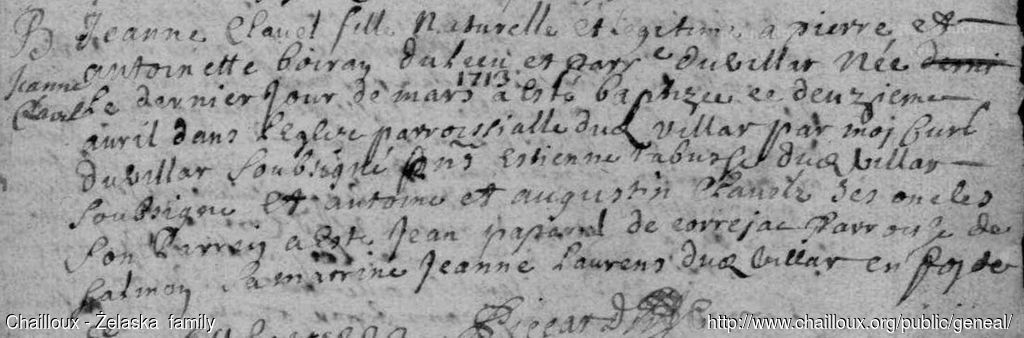 B Jeanne Clavel fille Naturelle et legitime a pierre et
Jeanne Clavel
antoinette boiray du lieu et parr^e du villar Née dernr
le dernier Jour de mars 1713 a esté baptizee ce deuzieme
avril dans l'eglize parroissialle dud villar par moy curé
du villar soubsigné pns Estienne rabusse dud villar
soubsigne et antoine et augustin Clavelz ses oncles
son parrein a este Jean paparel de correjac parroisse de
salmon sa marrine Jeanne Laurens dud villar en foy de
Chailloux - Želaska family
http://www.chailloux.org/public/geneal/